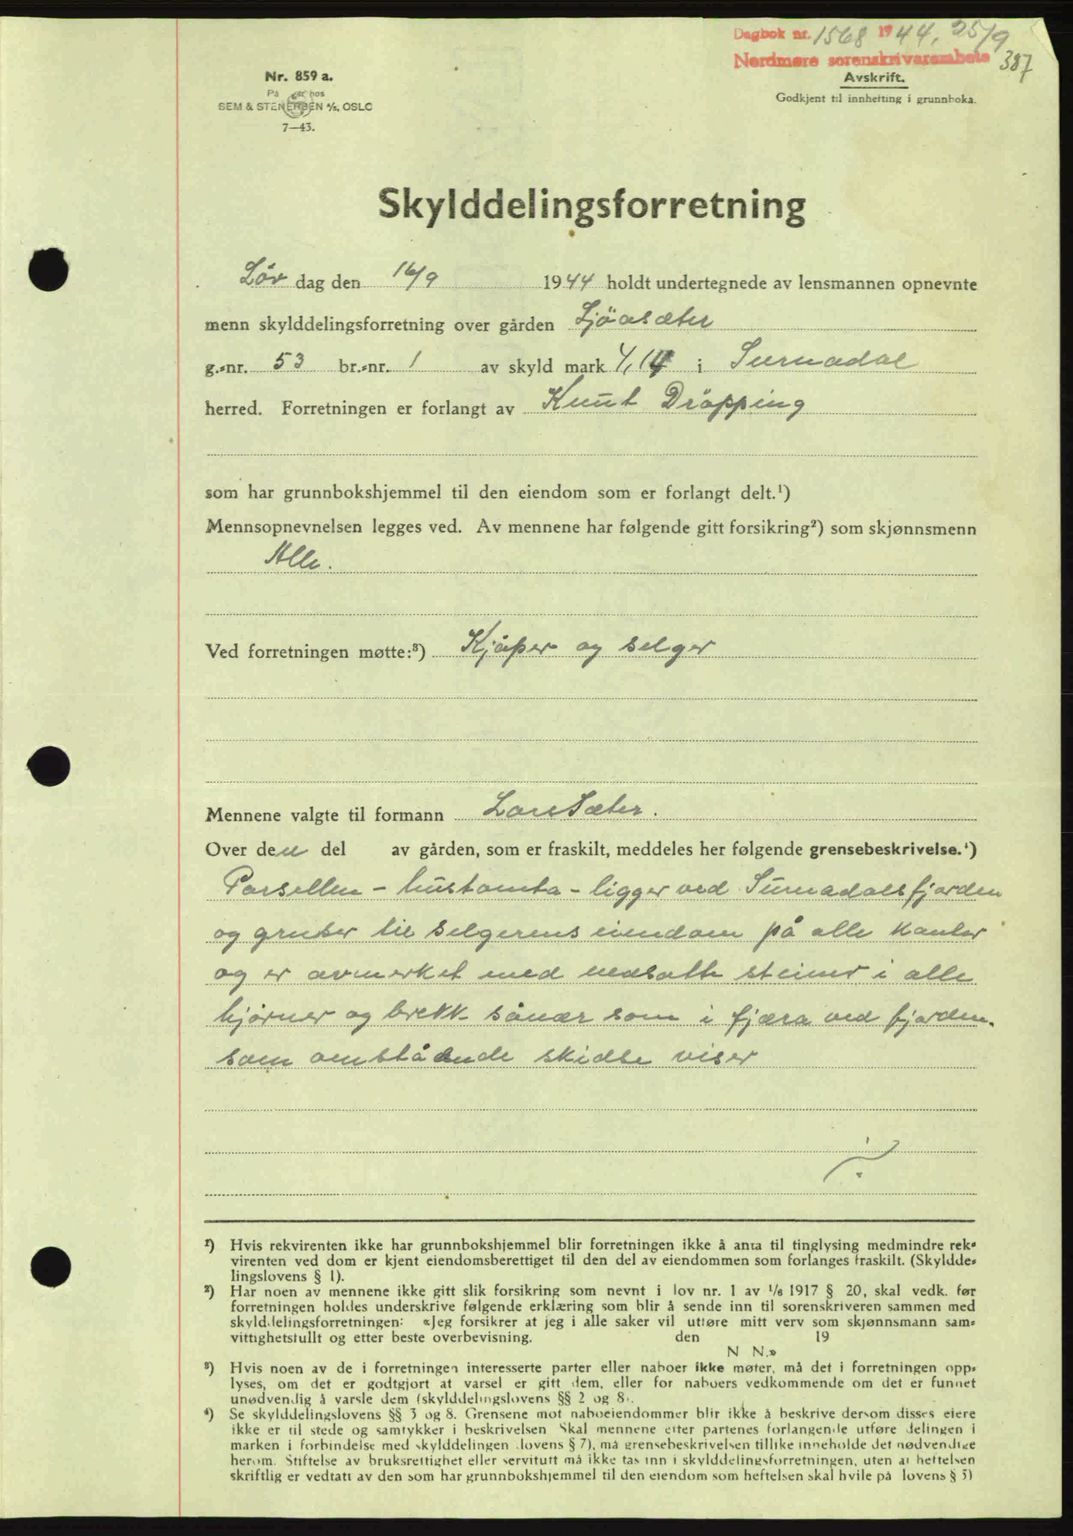 Dagbok nr. 1568 1944. 25/9
Nordmøre sorenskriverembete 387
Avskrift.
Godkjent til innhefting i grunnboka.
Nr. 859 a.
På hos
SEM & STENERSEN A/S, OSLO
7—43.
Skylddelingsforretning
Lør dag den 16/9 1944 holdt undertegnede av lensmannen opnevnte
menn skylddelingsforretning over gården Sjøasæter
g.-nr. 53 br.-nr. 1 av skyld mark 4,14 i Surnadal
herred. Forretningen er forlangt av Knut Drøpping
som har grunnbokshjemmel til den eiendom som er forlangt delt.¹)
Mennsopnevnelsen legges ved. Av mennene har følgende gitt forsikring²) som skjønnsmenn
Alle.
Ved forretningen møtte:³) Kjøper og selger
Mennene valgte til formann Lars Sæter.
Over den del av gården, som er fraskilt, meddeles her følgende grensebeskrivelse.⁴)
Parsellen - hustomta - ligger ved Surnadalsfjorden
og grenser til selgerens eiendom på alle kanter
og er avmerket med nedsatte steiner i alle
hjørner og brekk sånær som i fjæra ved fjorden.
som omstående skidse viser
¹) Hvis rekvirenten ikke har grunnbokshjemmel blir forretningen ikke å anta til tinglysing medmindre rek-
virenten ved dom er kjent eiendomsberettiget til den del av eiendommen som forlanges fraskilt. (Skyldde-
lingslovens § 1).
²) Har noen av mennene ikke gitt slik forsikring som nevnt i lov nr. 1 av 1/6 1917 § 20, skal vedk. før
forretningen holdes underskrive følgende erklæring som blir å sende inn til sorenskriveren sammen med
skylddelingsforretningen: «Jeg forsikrer at jeg i alle saker vil utføre mitt verv som skjønnsmann sam-
vittighetsfullt og etter beste overbevisning. den 19
N N.»
³) Hvis noen av de i forretningen interesserte parter eller naboer ikke møter, må det i forretningen opp-
lyses, om det er godtgjort at varsel er gitt dem, eller for naboers vedkommende om det er funnet
unødvendig å varsle dem (skylddelingslovens §§ 2 og 8).
⁴) Se skylddelingslovens §§ 3 og 8. Grensene mot naboeiendommer blir ikke å beskrive dersom disses eiere
ikke er til stede og samtykker i beskrivelsen Skal mennene etter partenes forlangende utføre delingen i
marken i forbindelse med skylddelingen (lovens § 7), må grensebeskrivelsen tillike inneholde det nødvendige
herom. Stiftelse av bruksrettighet eller servitutt må ikke tas inn i skylddelingsforretningen, uten at heftelsen
skriftlig er vedtatt av den som har grunnbokshjemmel til den eiendom som heftelsen skal hvile på lovens § 3)